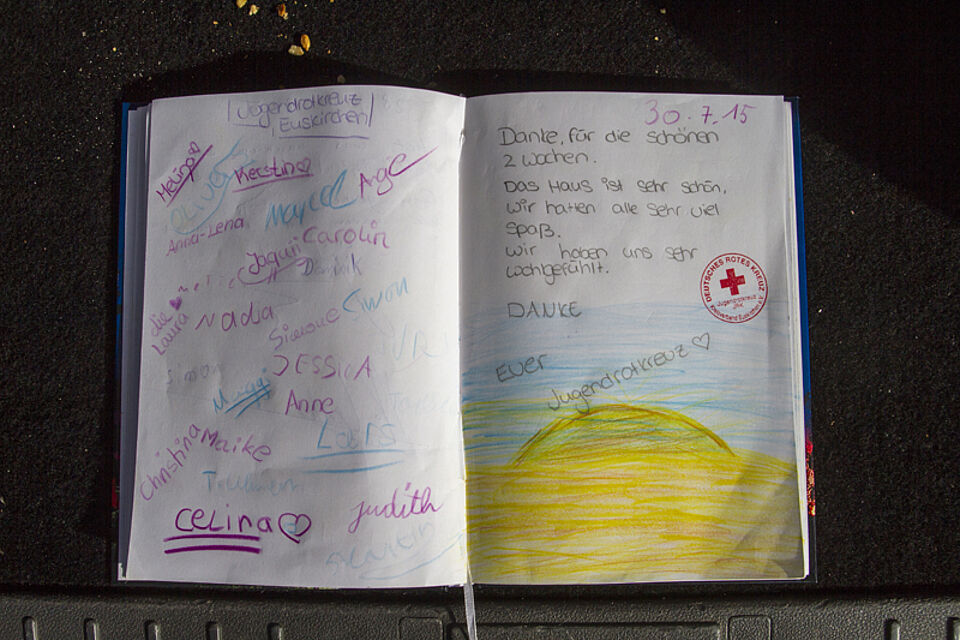 Jugendrotkreuz
Euskirchen
Melina
Oliver
Kerstin
Marcel
Ange
Anna-Lena
Jaquii
Carolin
Dominik
die
Laura
Nadia
Simone
Simon
JESSICA
Anne
Lars
Christina
Maike
CELINA
Judith
30.7.15
Danke, für die schönen
2 Wochen.
Das Haus ist sehr schön,
wir hatten alle sehr viel
Spaß.
wir haben uns sehr
wohlgefühlt.
DANKE
Euer
Jugendrotkreuz ♡
DEUTSCHES ROTES KREUZ
Jugendrotkreuz
Kreisverband Euskirchen e.V.